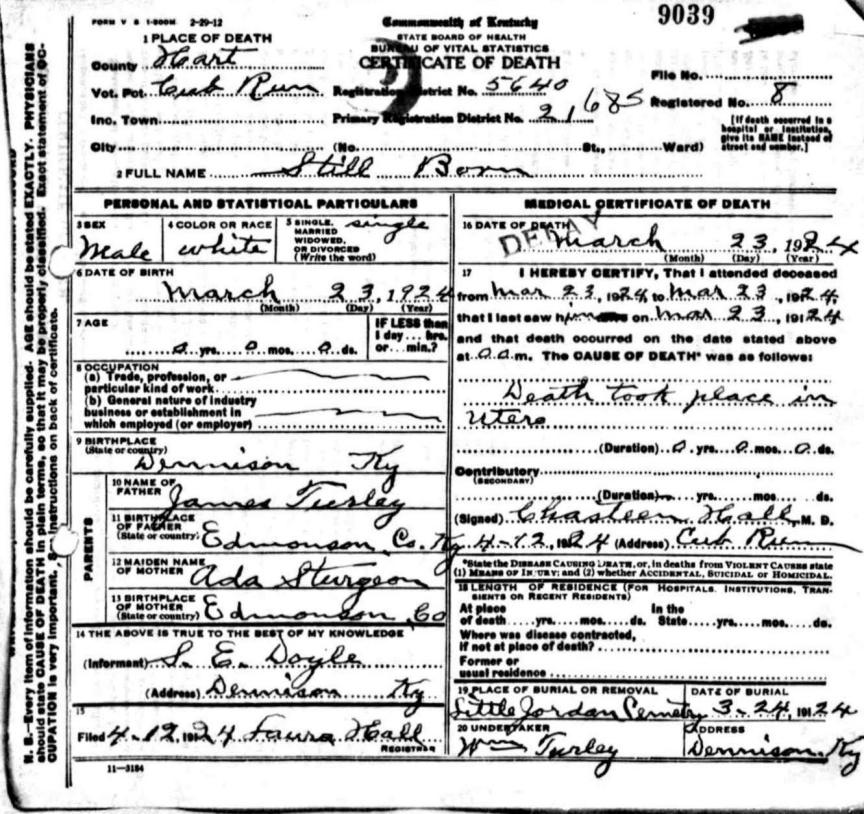 FORM V S 1-500M 2-29-12
Commonwealth of Kentucky
9039
STATE BOARD OF HEALTH
BUREAU OF VITAL STATISTICS
CERTIFICATE OF DEATH
1 PLACE OF DEATH
County Hart
Vot. Pct. Cub Run
Inc. Town
City (No. St., Ward)
Registration District No. 5640
Primary Registration District No. 21685
File No.
Registered No. 8
[If death occurred in a hospital or institution, give its NAME instead of street and number.]
2 FULL NAME Still Born
PERSONAL AND STATISTICAL PARTICULARS
3 SEX Male
4 COLOR OR RACE white
5 SINGLE, MARRIED WIDOWED, OR DIVORCED (Write the word) single
6 DATE OF BIRTH
March 23, 1924
(Month) (Day) (Year)
7 AGE
0 yrs. 0 mos. 0 ds.
IF LESS than 1 day... hrs. or... min.?
8 OCCUPATION
(a) Trade, profession, or particular kind of work
(b) General nature of industry business or establishment in which employed (or employer)
9 BIRTHPLACE (State or country) Dennison Ky
PARENTS
10 NAME OF FATHER James Turley
11 BIRTHPLACE OF FATHER (State or country) Edmonson Co. Ky
12 MAIDEN NAME OF MOTHER Ada Sturgeon
13 BIRTHPLACE OF MOTHER (State or country) Edmonson Co
14 THE ABOVE IS TRUE TO THE BEST OF MY KNOWLEDGE
(Informant) S. E. Doyle
(Address) Dennison Ky
15
Filed 4-12, 1924 Laura Hall
REGISTRAR
11-3184
MEDICAL CERTIFICATE OF DEATH
16 DATE OF DEATH
DELAY
March 23, 1924
(Month) (Day) (Year)
17 I HEREBY CERTIFY, That I attended deceased
from Mar 23, 1924, to Mar 23, 1924,
that I last saw him on Mar 23, 19124
and that death occurred on the date stated above
at 0.0.m. The CAUSE OF DEATH* was as follows:
Death took place in
Utero
(Duration) 0 yrs. 0 mos. 0 ds.
Contributory (SECONDARY)
(Duration) yrs. mos. ds.
(Signed) Chasteen Hall, M. D.
4-12, 1924 (Address) Cub Run
*State the DISEASE CAUSING DEATH, or, in deaths from VIOLENT CAUSES state (1) MEANS OF INJURY; and (2) whether ACCIDENTAL, SUICIDAL OR HOMICIDAL.
18 LENGTH OF RESIDENCE (FOR HOSPITALS, INSTITUTIONS, TRANSIENTS OR RECENT RESIDENTS)
At place of death yrs. mos. ds. In the State yrs. mos. ds.
Where was disease contracted, if not at place of death?
Former or usual residence
19 PLACE OF BURIAL OR REMOVAL
Little Jordan Cemetry
DATE OF BURIAL
3-24, 19124
20 UNDERTAKER
Wm Turley
ADDRESS
Dennison, Ky
N. B.—Every item of information should be carefully supplied. AGE should be stated EXACTLY. PHYSICIANS
should state CAUSE OF DEATH in plain terms, so that it may be properly classified. Exact statement of OC-
CUPATION is very important. instructions on back of certificate.